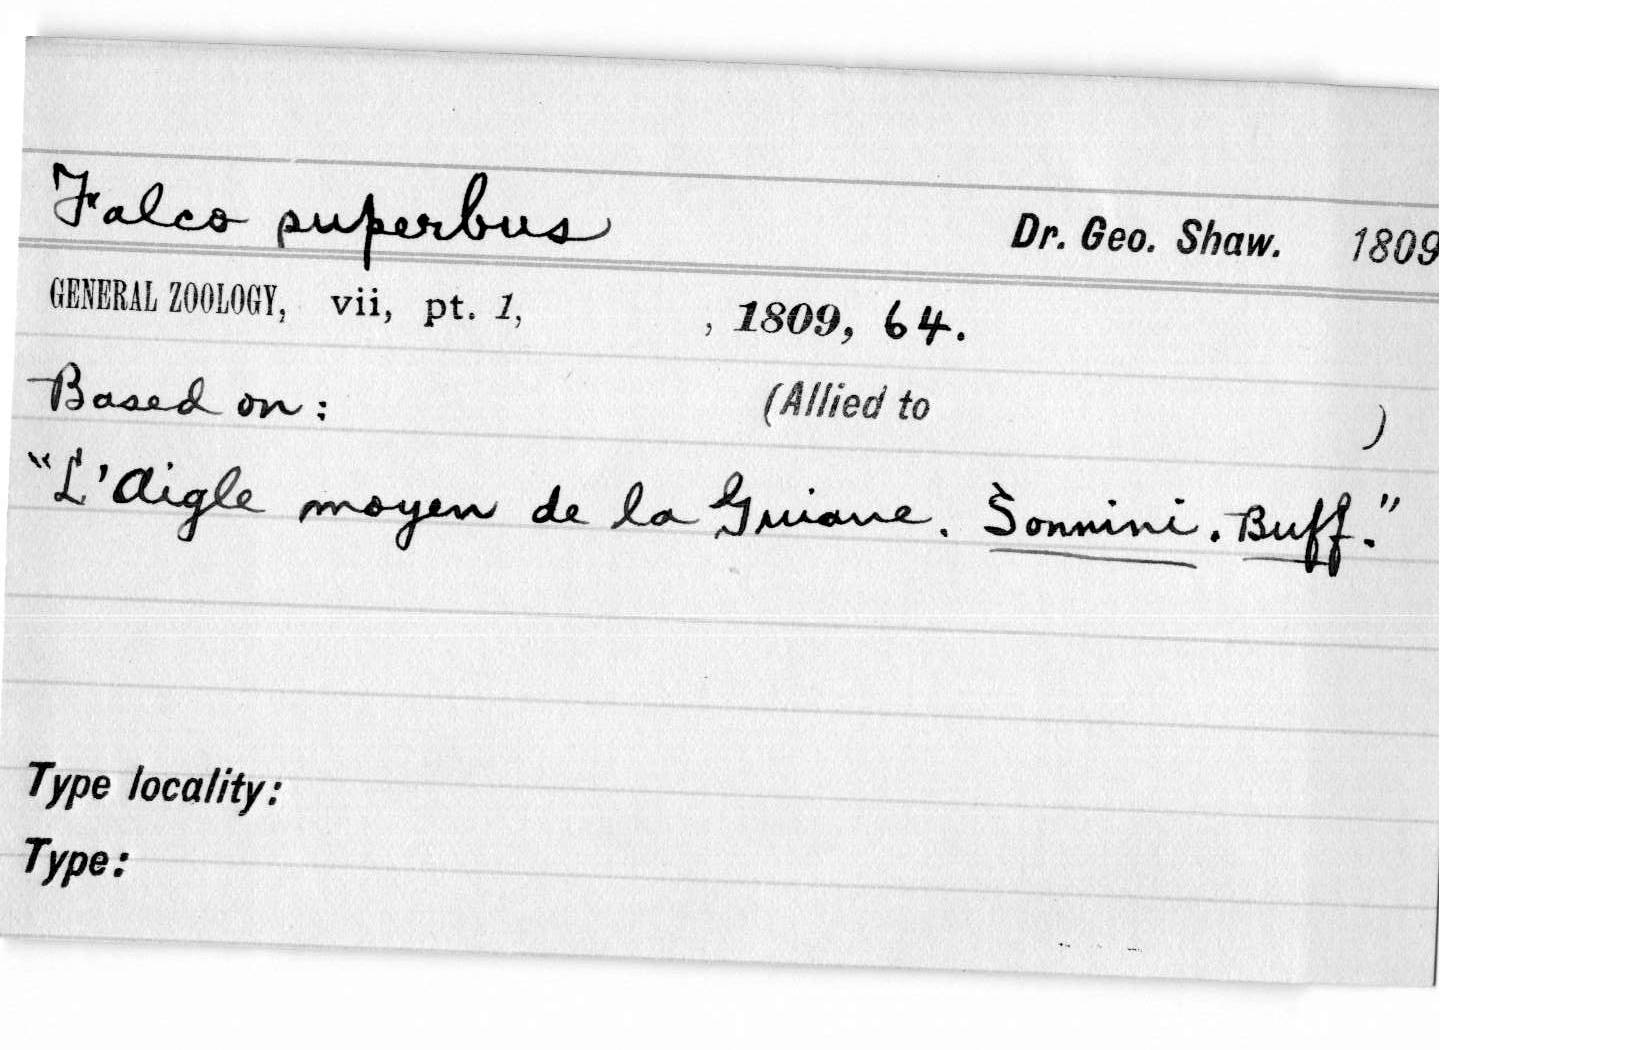 Falco superbus Dr. Geo. Shaw. 1809
GENERAL ZOOLOGY, vii, pt. 1, , 1809, 64.
Based on: (Allied to )
"L'Aigle moyen de la Guiane. Sonnini. Buff."
Type locality:
Type: